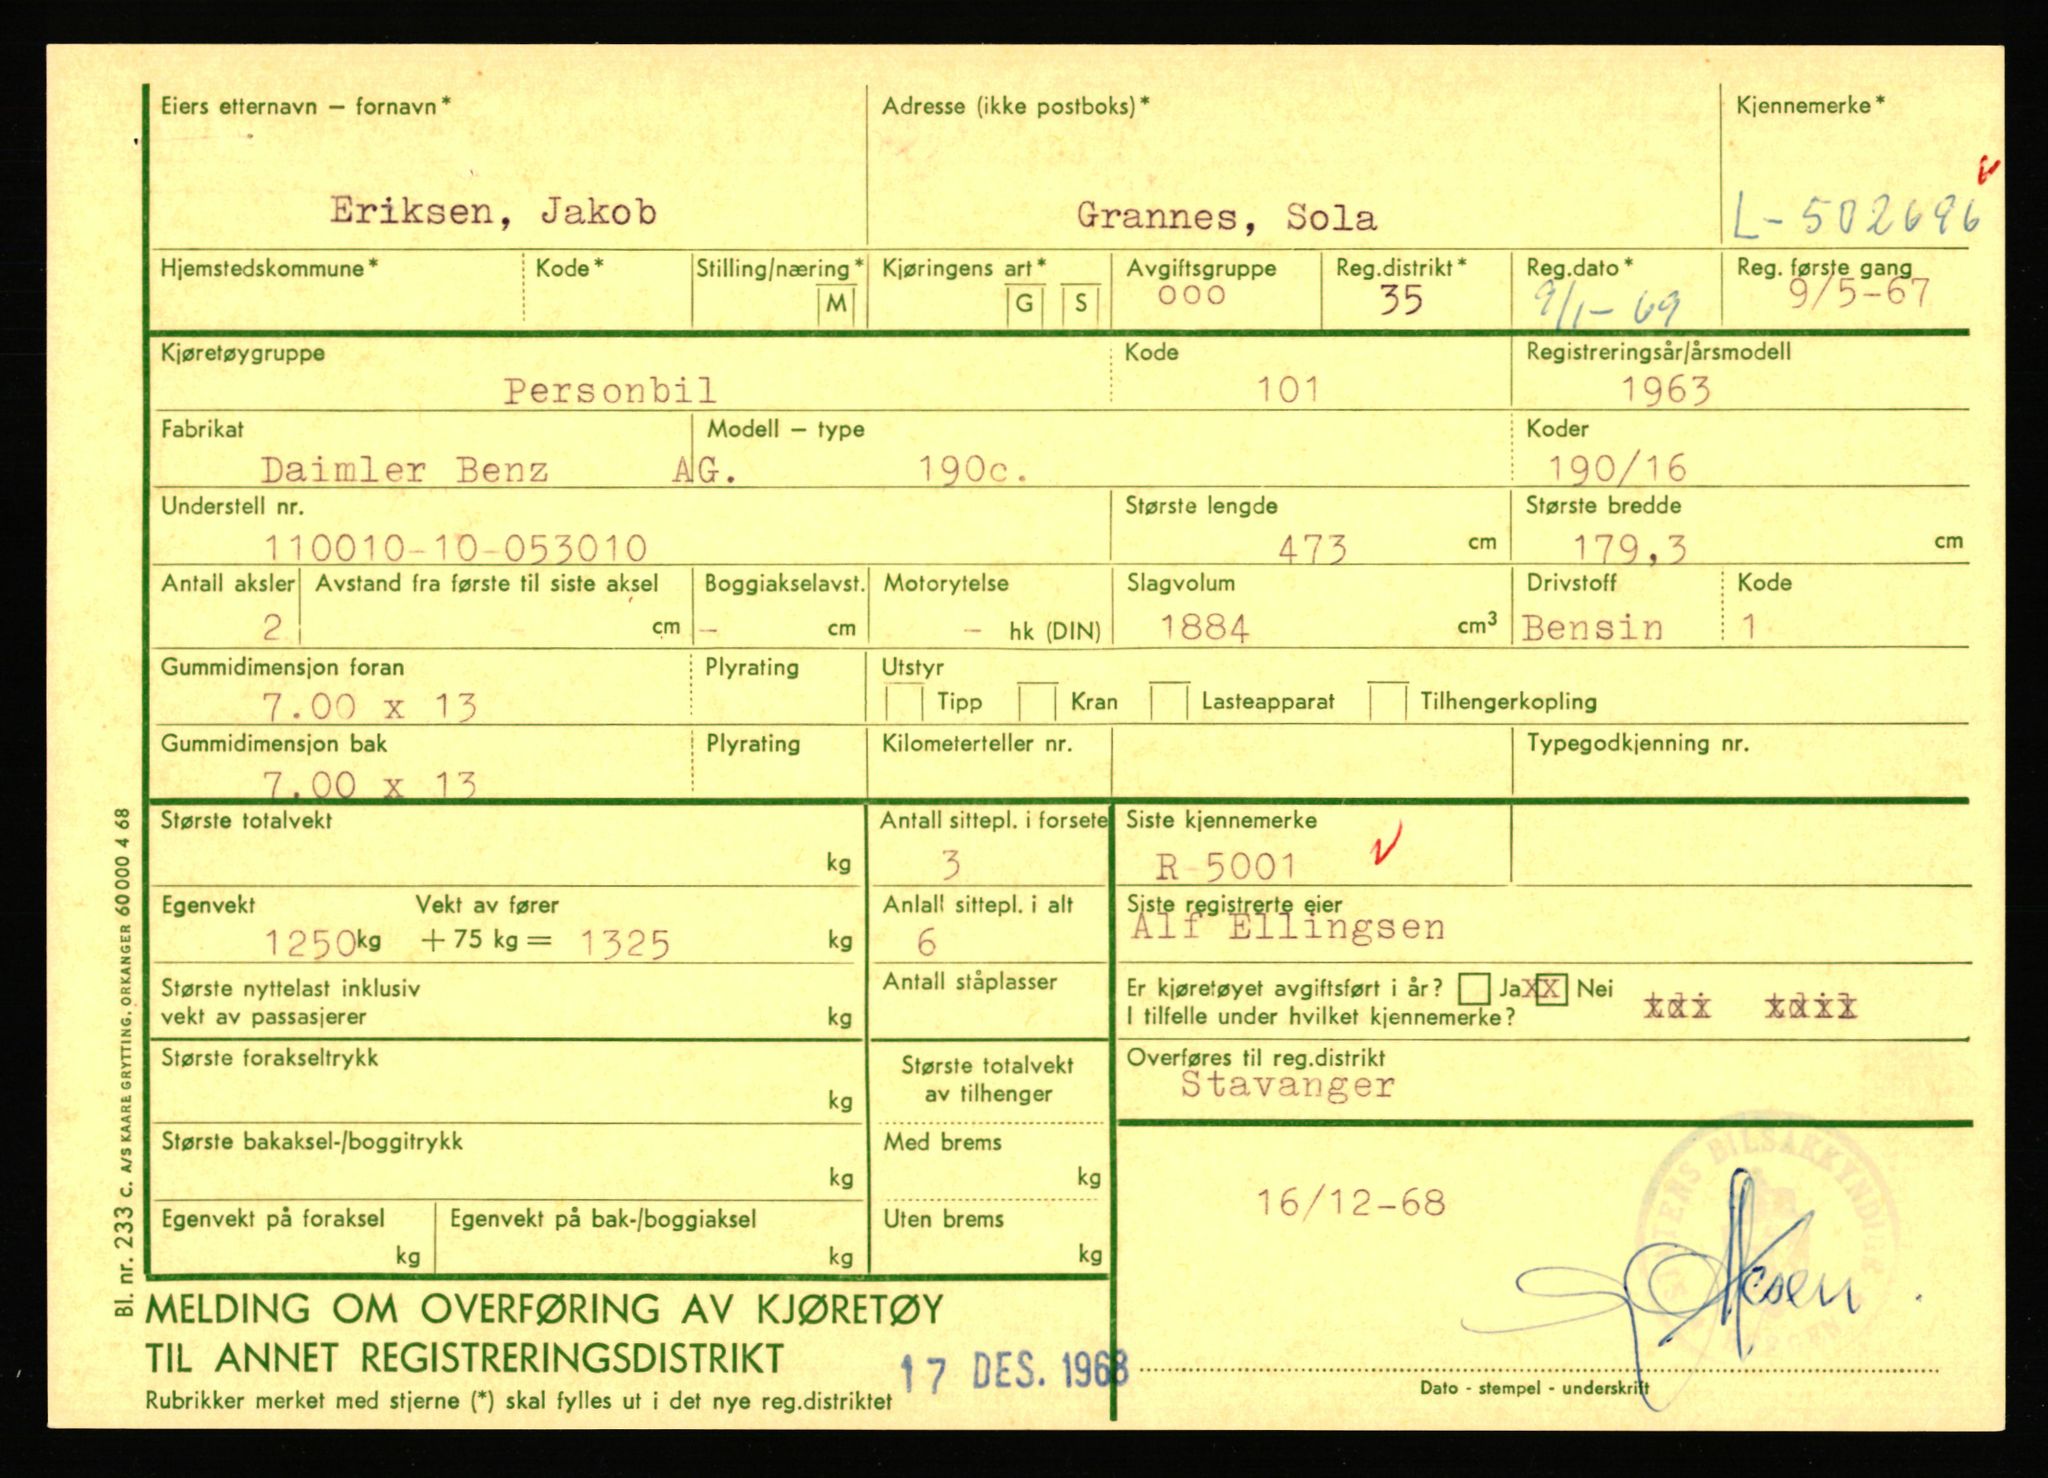 Eiers etternavn – fornavn*
Adresse (ikke postboks)*
Kjennemerke*
Eriksen, Jakob
Grannes, Sola
L-502696
Hjemstedskommune*
Kode*
Stilling/næring*
M
Kjøringens art*
G
S
Avgiftsgruppe
000
Reg.distrikt*
35
Reg.dato*
9/1-69
Reg. første gang
9/5-67
Kjøretøygruppe
Personbil
Kode
101
Registreringsår/årsmodell
1963
Fabrikat
Daimler Benz AG.
Modell – type
190c.
Koder
190/16
Understell nr.
110010-10-053010
Største lengde
473 cm
Største bredde
179,3 cm
Antall aksler
2
Avstand fra første til siste aksel
cm
Boggiakselavst.
– cm
Motorytelse
– hk (DIN)
Slagvolum
1884 cm³
Drivstoff
Bensin
Kode
1
Gummidimensjon foran
7.00 x 13
Plyrating
Utstyr
Tipp
Kran
Lasteapparat
Tilhengerkopling
Gummidimensjon bak
7.00 x 13
Plyrating
Kilometerteller nr.
Typegodkjenning nr.
Største totalvekt
kg
Antall sittepl. i forsete
3
Siste kjennemerke
R-5001
Egenvekt
1250 kg
Vekt av fører
+ 75 kg = 1325 kg
Anlall sittepl. i alt
6
Siste registrerte eier
Alf Ellingsen
Største nyttelast inklusiv
vekt av passasjerer
kg
Antall ståplasser
Er kjøretøyet avgiftsført i år? Ja xx Nei
I tilfelle under hvilket kjennemerke?
Største forakseltrykk
kg
Største totalvekt
av tilhenger
Overføres til reg.distrikt
Stavanger
Største bakaksel-/boggitrykk
kg
Med brems
kg
Egenvekt på foraksel
kg
Egenvekt på bak-/boggiaksel
kg
Uten brems
kg
16/12-68
MELDING OM OVERFØRING AV KJØRETØY
TIL ANNET REGISTRERINGSDISTRIKT
Rubrikker merket med stjerne (*) skal fylles ut i det nye reg.distriktet
17 DES. 1968
Dato - stempel - underskrift
Bl. nr. 233 C. A/S KAARE GRYTTING, ORKANGER 60000 4 68